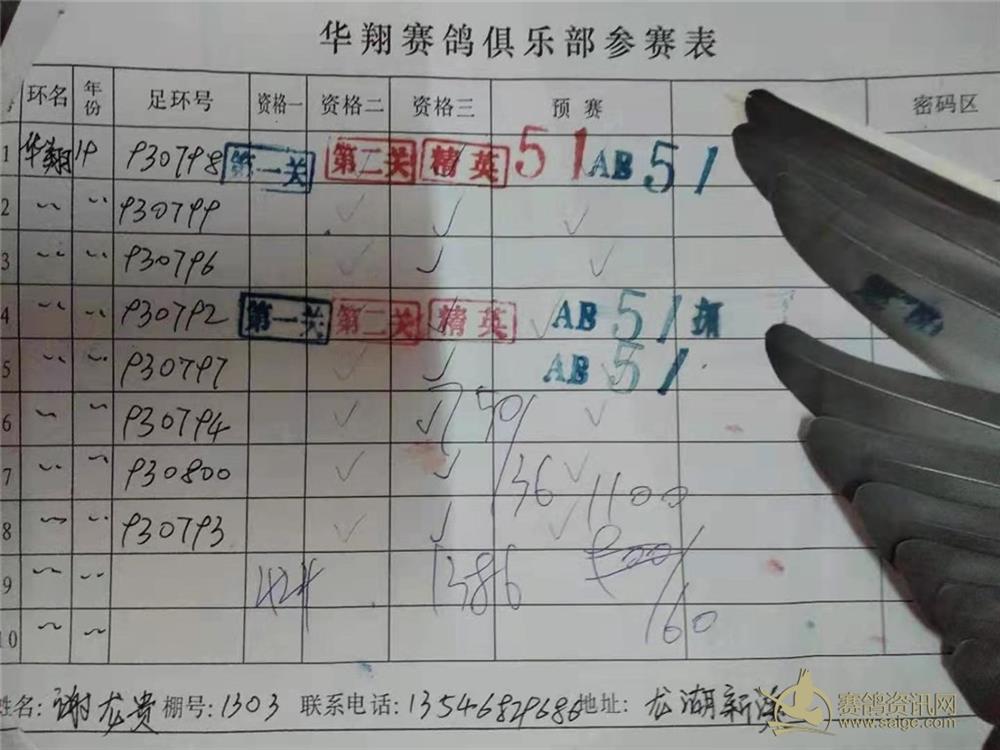 华翔赛鸽俱乐部参赛表
环名 年份 足环号 资格一 资格二 资格三 预赛 密码区
1 华翔 19 930798 第一关 第二关 精英 51 AB 51
2 930799
3 930796
4 930792 第一关 第二关 精英 AB 51
5 930797 AB 51
6 930794
7 930800 136 1100
8 930793
9 424 1386
10 160
姓名: 谢龙贵 棚号: 1303 联系电话: 13546829686 地址: 龙湖新
赛鸽资讯网
www.saige.com